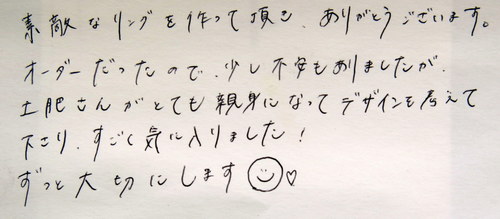 素敵なリングを作って頂き、ありがとうございます。
オーダーだったので、少し不安もありましたが、
土肥さんがとても親身になってデザインも考えて
下さり、すごく気に入りました！
ずっと大切にします☺♡